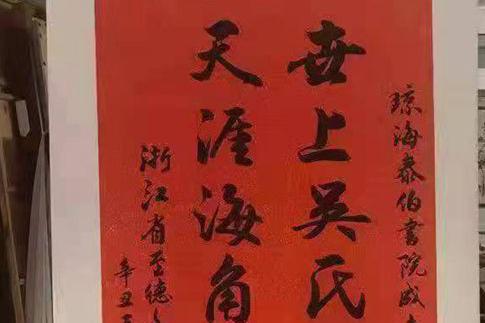 琼海泰伯书院成
世上吴氏
天涯海角
浙江省至德
辛丑